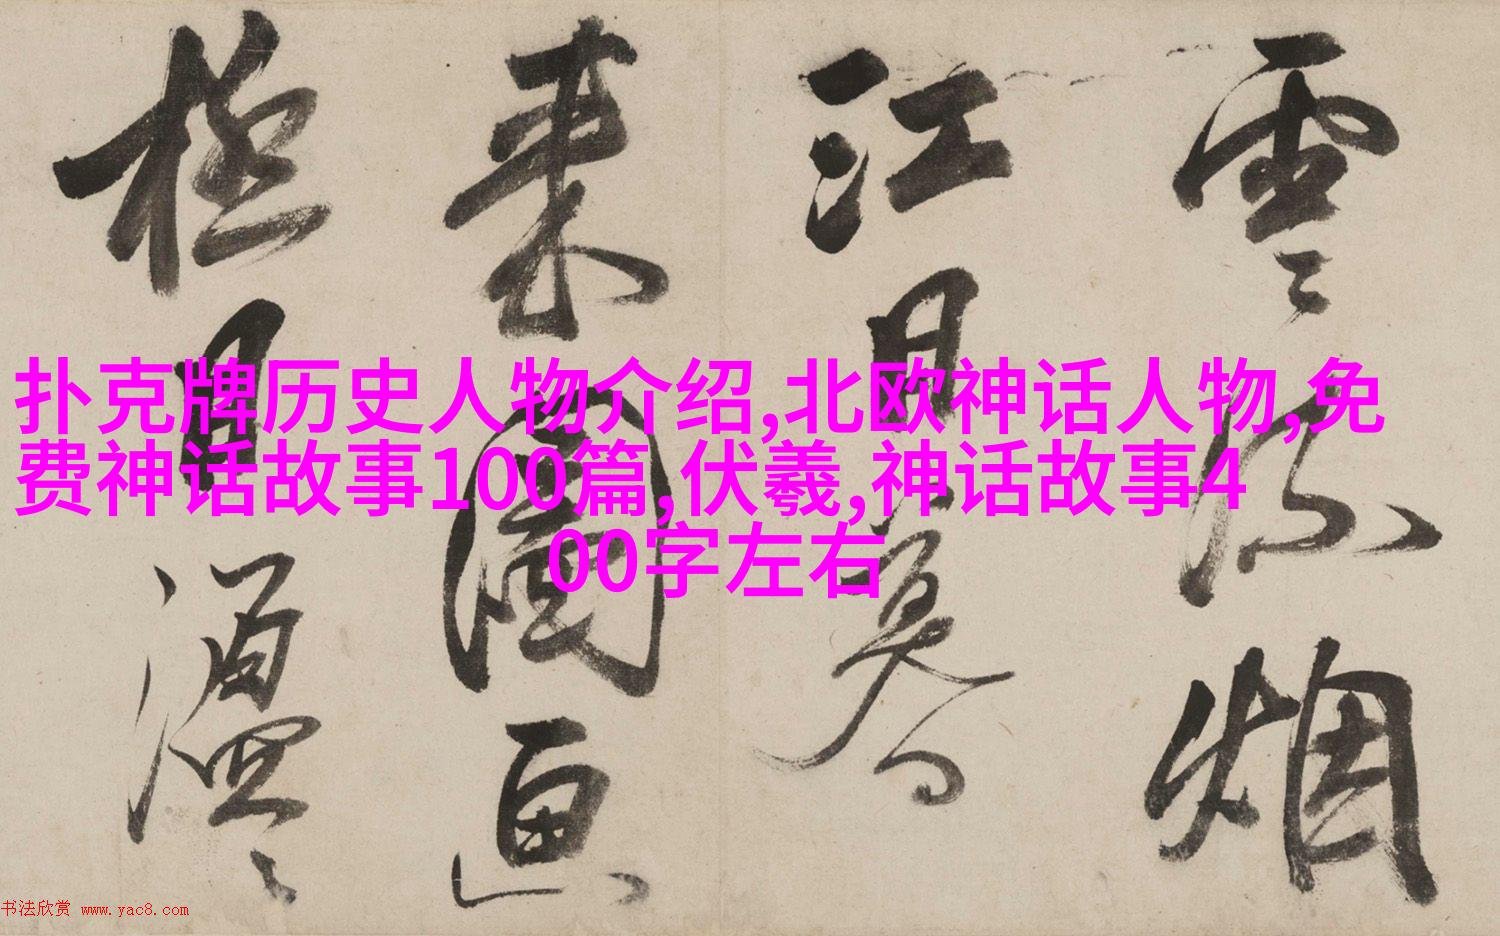 扑克牌历史人物介绍,北欧神话人物,免
费神话故事100篇,伏羲,神话故事4
00字左右
雲烟
江
来圖画
極目
书法欣赏 www.yac8.com